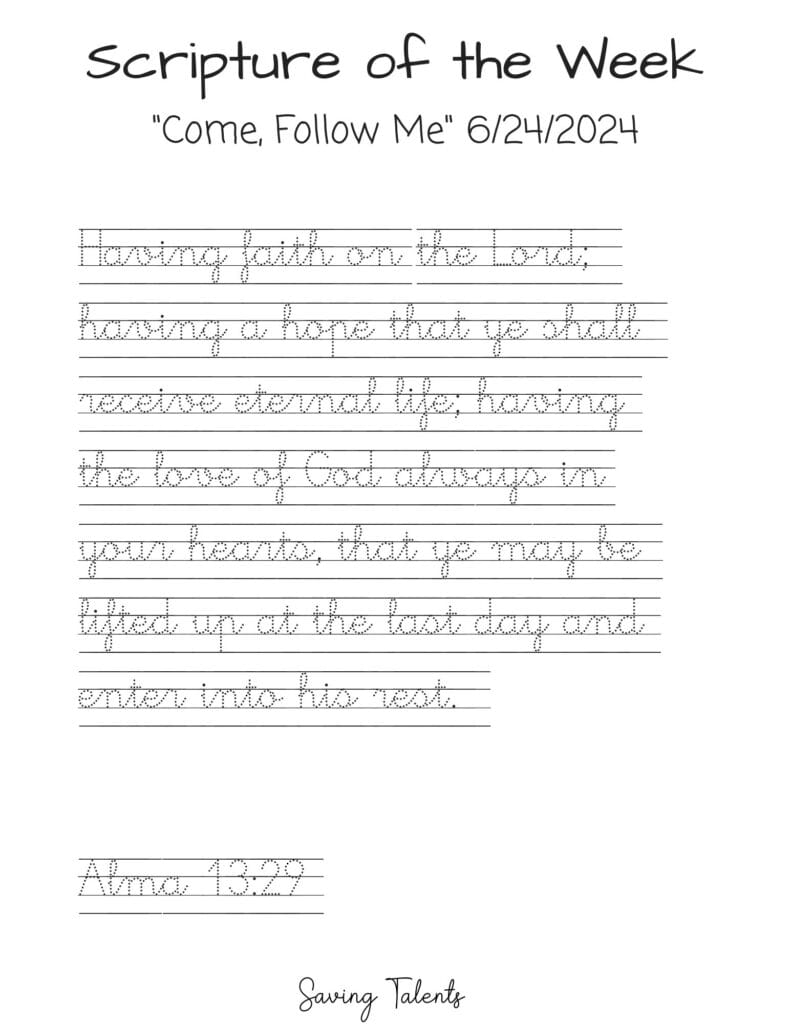 Scripture of the Week
"Come, Follow Me" 6/24/2024
Having faith on the Lord;
having a hope that ye shall
receive eternal life; having
the love of God always in
your hearts, that ye may be
lifted up at the last day and
enter into his rest.
Alma 13:29
Saving Talents